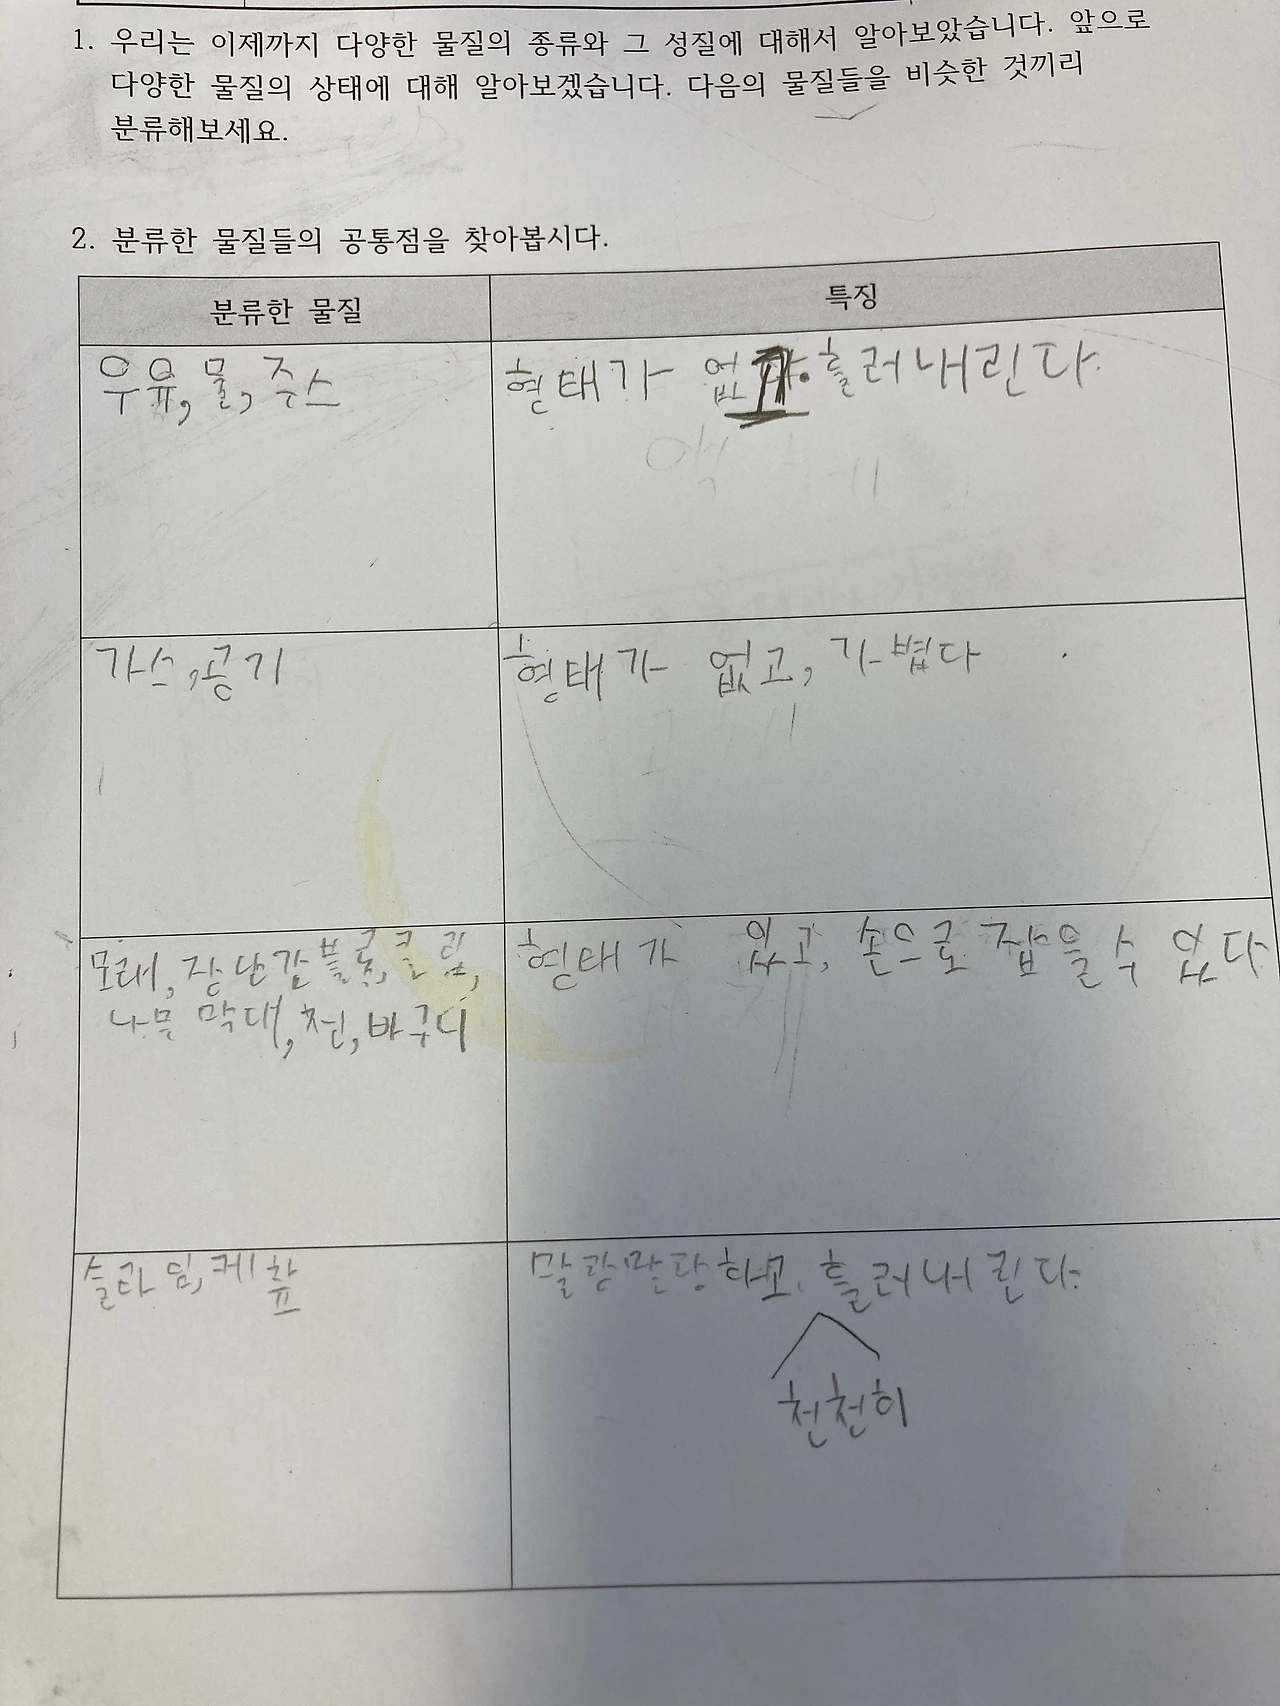 1. 우리는 이제까지 다양한 물질의 종류와 그 성질에 대해서 알아보았습니다. 앞으로
다양한 물질의 상태에 대해 알아보겠습니다. 다음의 물질들을 비슷한 것끼리
분류해보세요.
2. 분류한 물질들의 공통점을 찾아봅시다.
분류한 물질
특징
우유, 물, 주스
형태가 없고. 흘러내린다.
가스, 공기
형태가 없고, 가볍다
모래, 장난감 블록, 클립,
나무 막대, 천, 바구니
형태가 있고, 손으로 잡을 수 있다
슬라임, 케찹
말랑말랑하고. 흘러내린다.
천천히